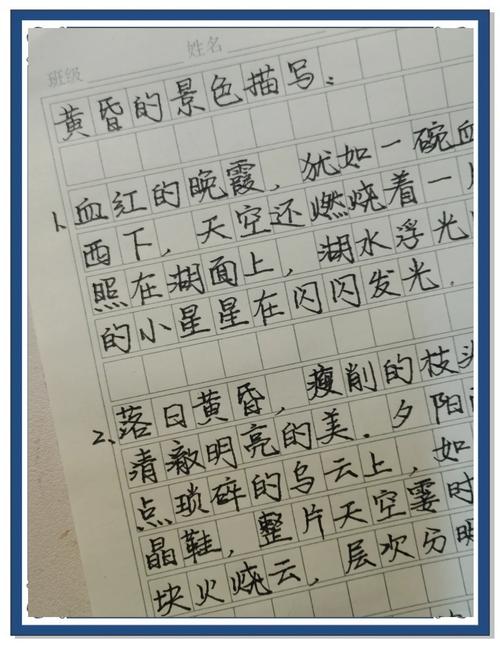 班级 姓名
黄昏的景色描写：
1、血红的晚霞，犹如一碗血
西下，天空还燃烧着一片
照在湖面上，湖水浮光
的小星星在闪闪发光.
2、落日黄昏，瘦削的枝头
清澈明亮的美.夕阳
点琐碎的乌云上，如
晶鞋，整片天空霎时
块火烧云，层次分明